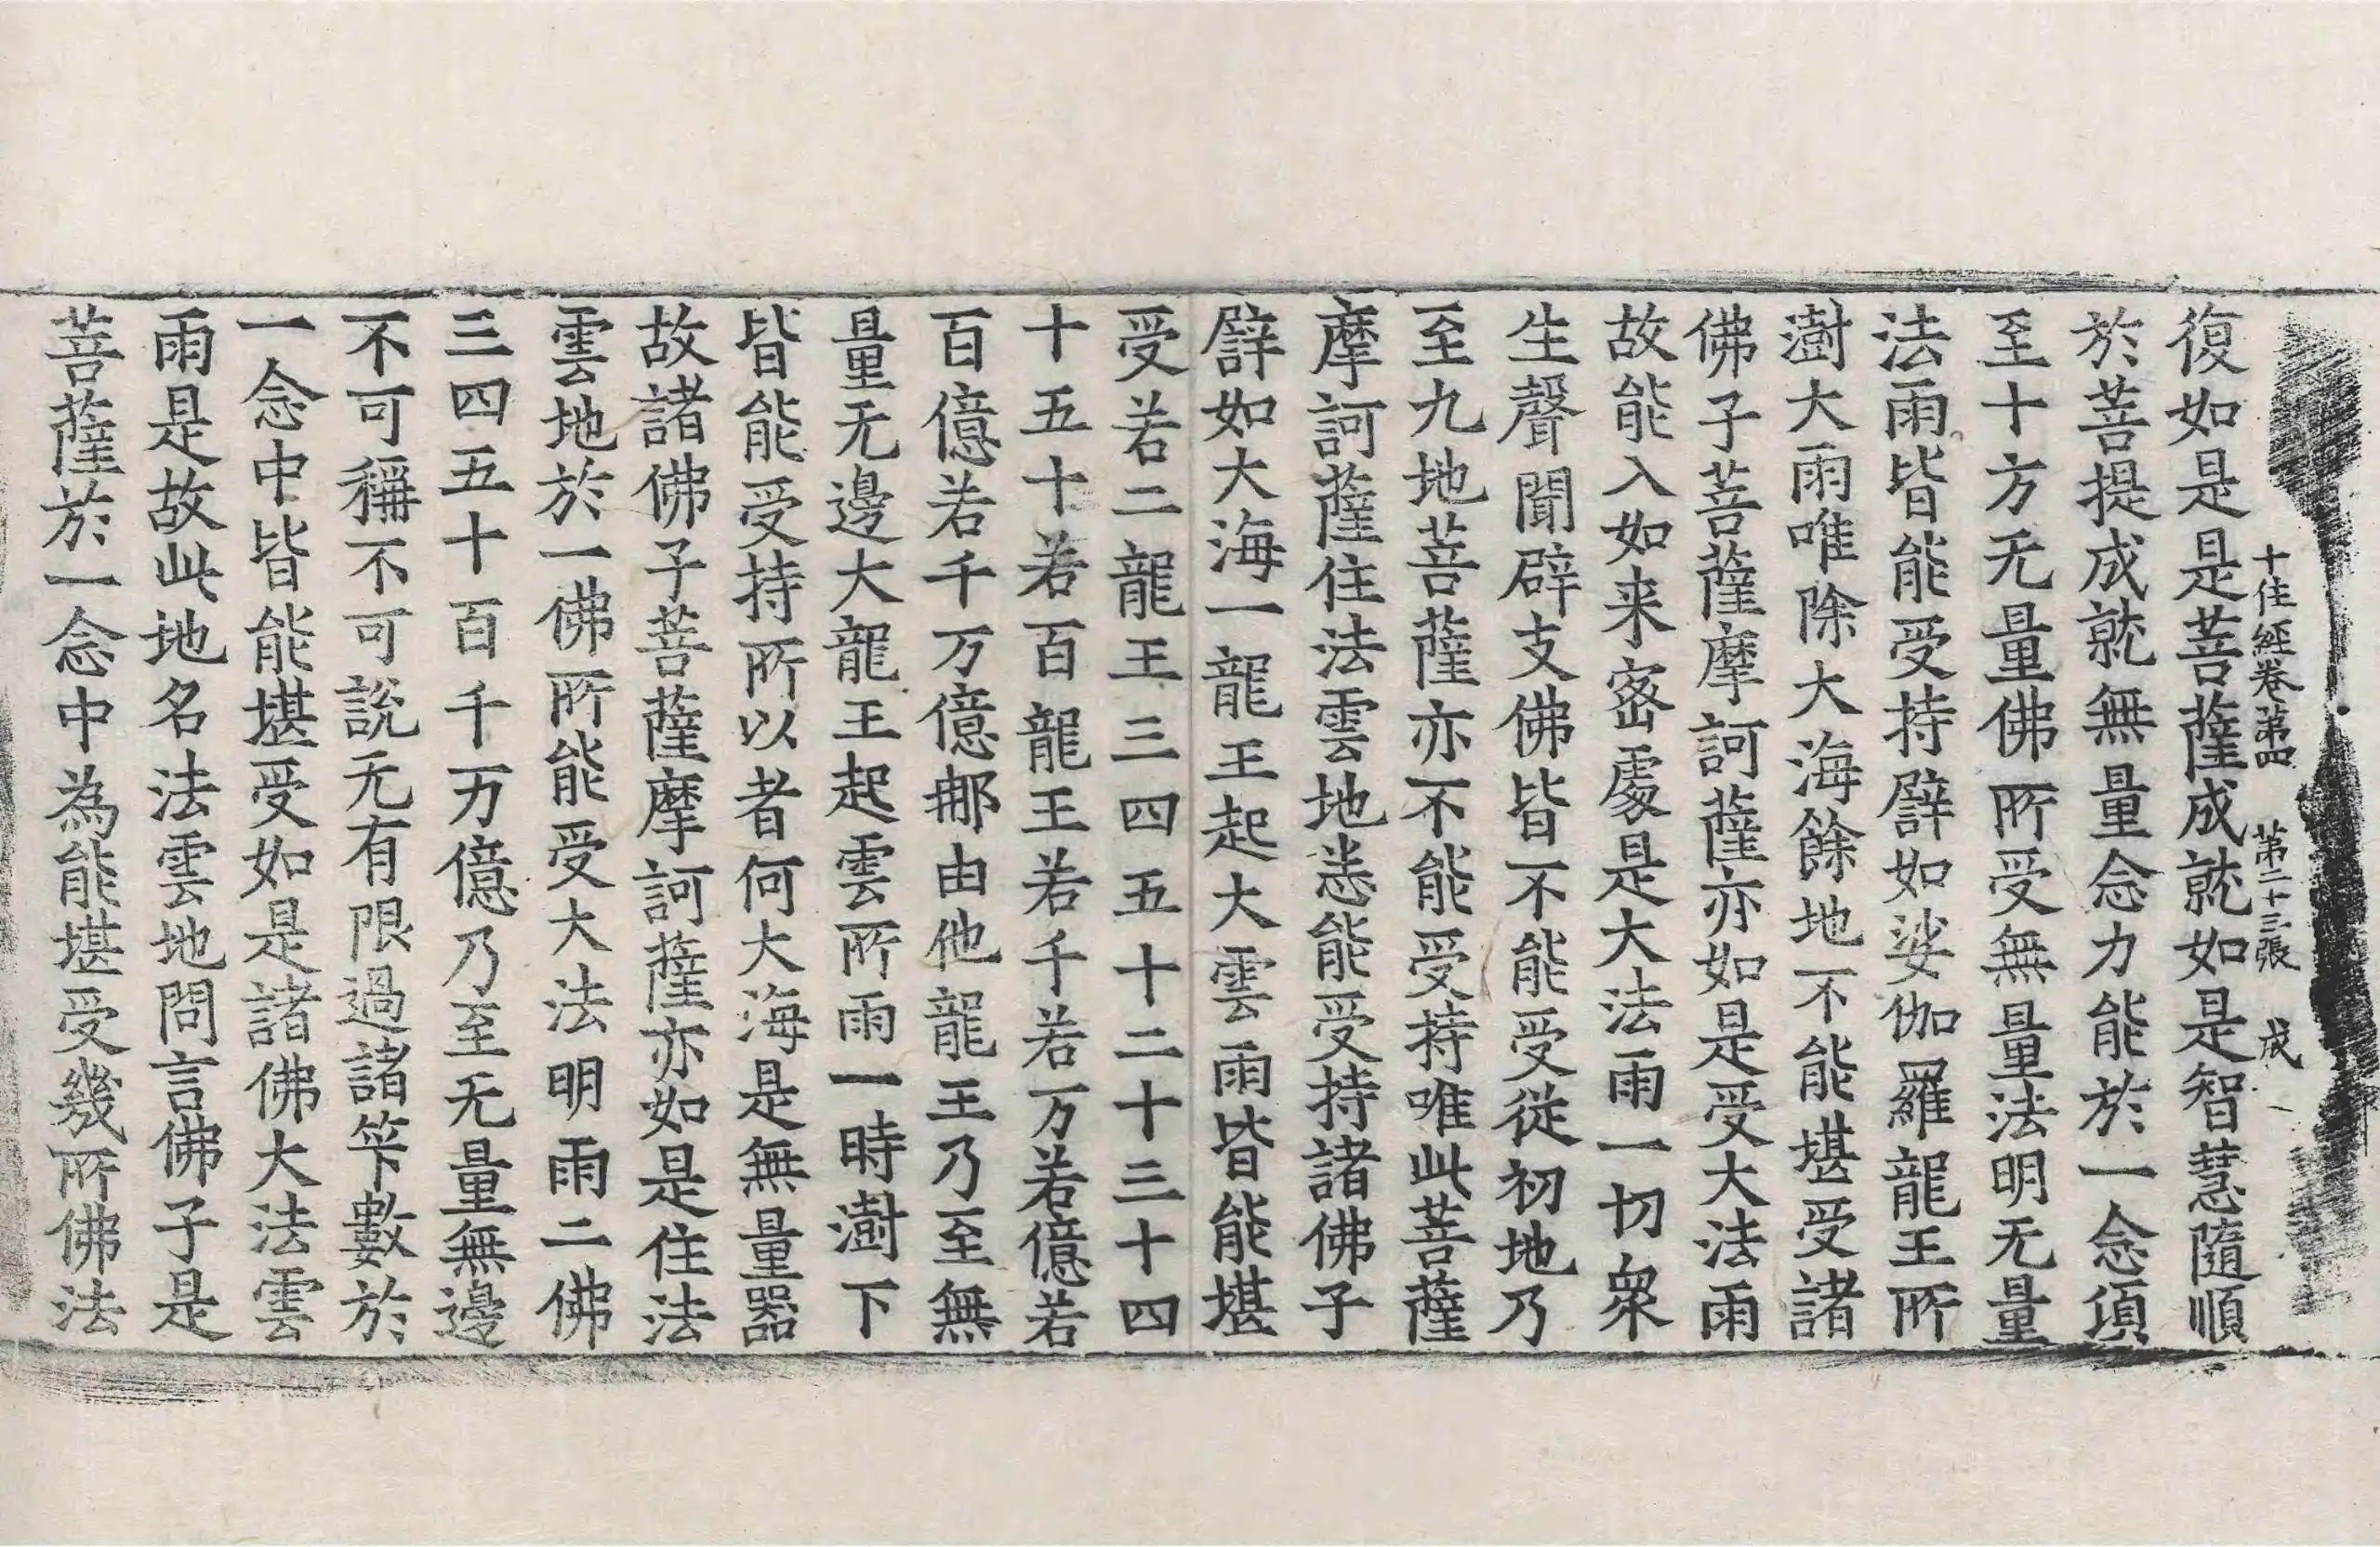 十住經卷第四　第二十三張　戍
復如是是菩薩成就如是智慧隨順
於菩提成就無量念力能於一念須
至十方无量佛所受無量法明无量
法雨皆能受持譬如娑伽羅龍王所
澍大雨唯除大海餘地不能堪受諸
佛子菩薩摩訶薩亦如是受大法雨
故能入如来宻處是大法雨一切衆
生聲聞辟支佛皆不能受從初地乃
至九地菩薩亦不能受持唯此菩薩
摩訶薩住法雲地悉能受持諸佛子
譬如大海一龍王起大雲雨皆能堪
受若二龍王三四五十二十三十四
十五十若百龍王若千若万若億若
百億若千万億那由他龍王乃至無
量无邊大龍王起雲所雨一時澍下
皆能受持所以者何大海是無量器
故諸佛子菩薩摩訶薩亦如是住法
雲地於一佛所能受大法明雨二佛
三四五十百千万億乃至无量無邊
不可稱不可説无有限過諸笇數於
一念中皆能堪受如是諸佛大法雲
雨是故此地名法雲地問言佛子是
菩薩於一念中為能堪受幾所佛法